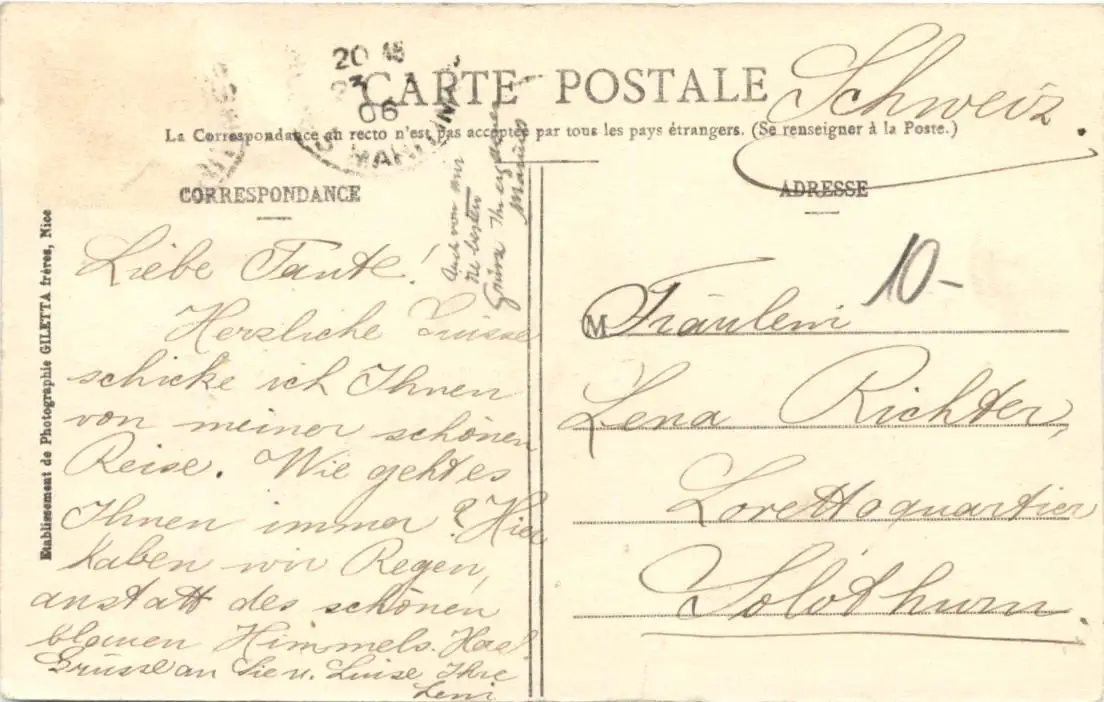 20 45
23
06
CARTE POSTALE
Schweiz.
La Correspondance au recto n'est pas acceptée par tous les pays étrangers. (Se renseigner à la Poste.)
CORRESPONDANCE
ADRESSE
Etablissement de Photographie GILETTA frères, Nice
Liebe Tante!
Herzliche Grüsse
schicke ich Ihnen
von meiner schönen
Reise. Wie geht es
Ihnen immer? Hier
haben wir Regen,
anstatt des schönen
blauen Himmels. Herzl.
Grüsse an Sie u. Luise, Ihre
Leni
Auch von mir
die besten
Grüsse Ihr ergebener
10-
M
Fräulein
Lena Richter,
Lorettoquartier
Solothurn.